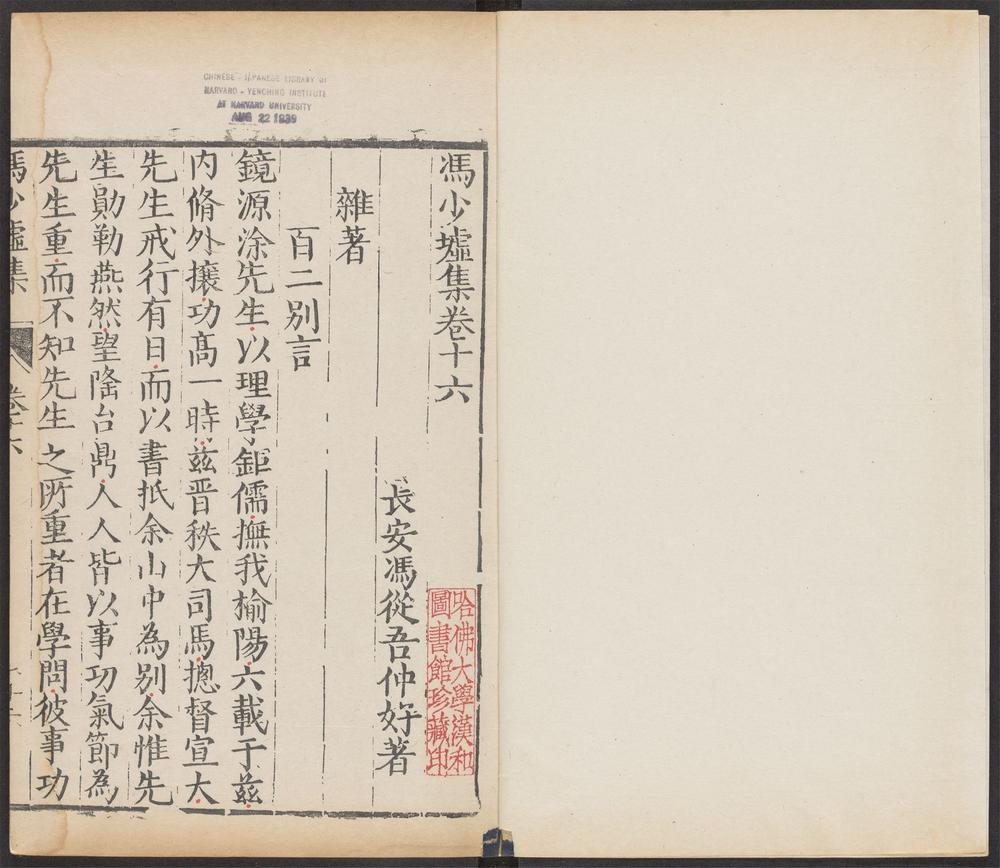 CHINESE - JAPANESE LIBRARY OF
HARVARD - YENCHING INSTITUTE
AT HARVARD UNIVERSITY
AUG 22 1939
馮少墟集卷十六
哈佛大學漢和
圖書館珍藏印
長安馮從吾仲好著
雜著
百二別言
鏡源涂先生以理學鉅儒撫我榆陽六載于茲
內脩外攘功高一時茲晋秩大司馬摠督宣大
先生戒行有日而以書抵余山中為別余惟先
生勛勒燕然望隆台鼎人人皆以事功氣節為
先生重而不知先生之所重者在學問彼事功
馮少墟集
卷十六